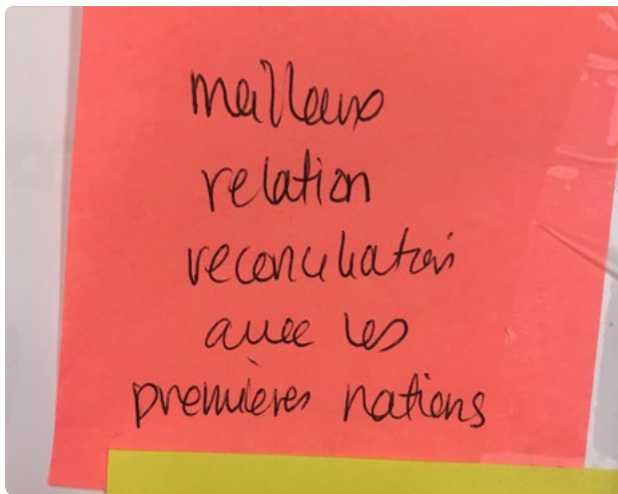 meilleurs
relation
reconciliation
avec les
premières nations